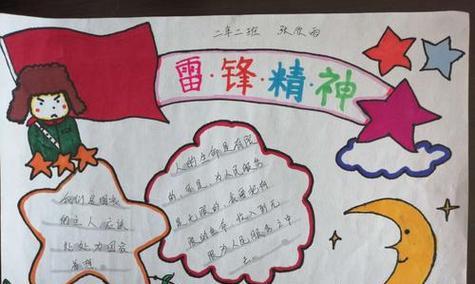 二年二班 张欣雨
雷·锋·精·神
人的生命是有限
的,可是,为人民服务
是无限的,我要把有
限的生命,投入到无
限为人民服务之中
去。
我们是国家
的主人应该
处处为国家
着想。